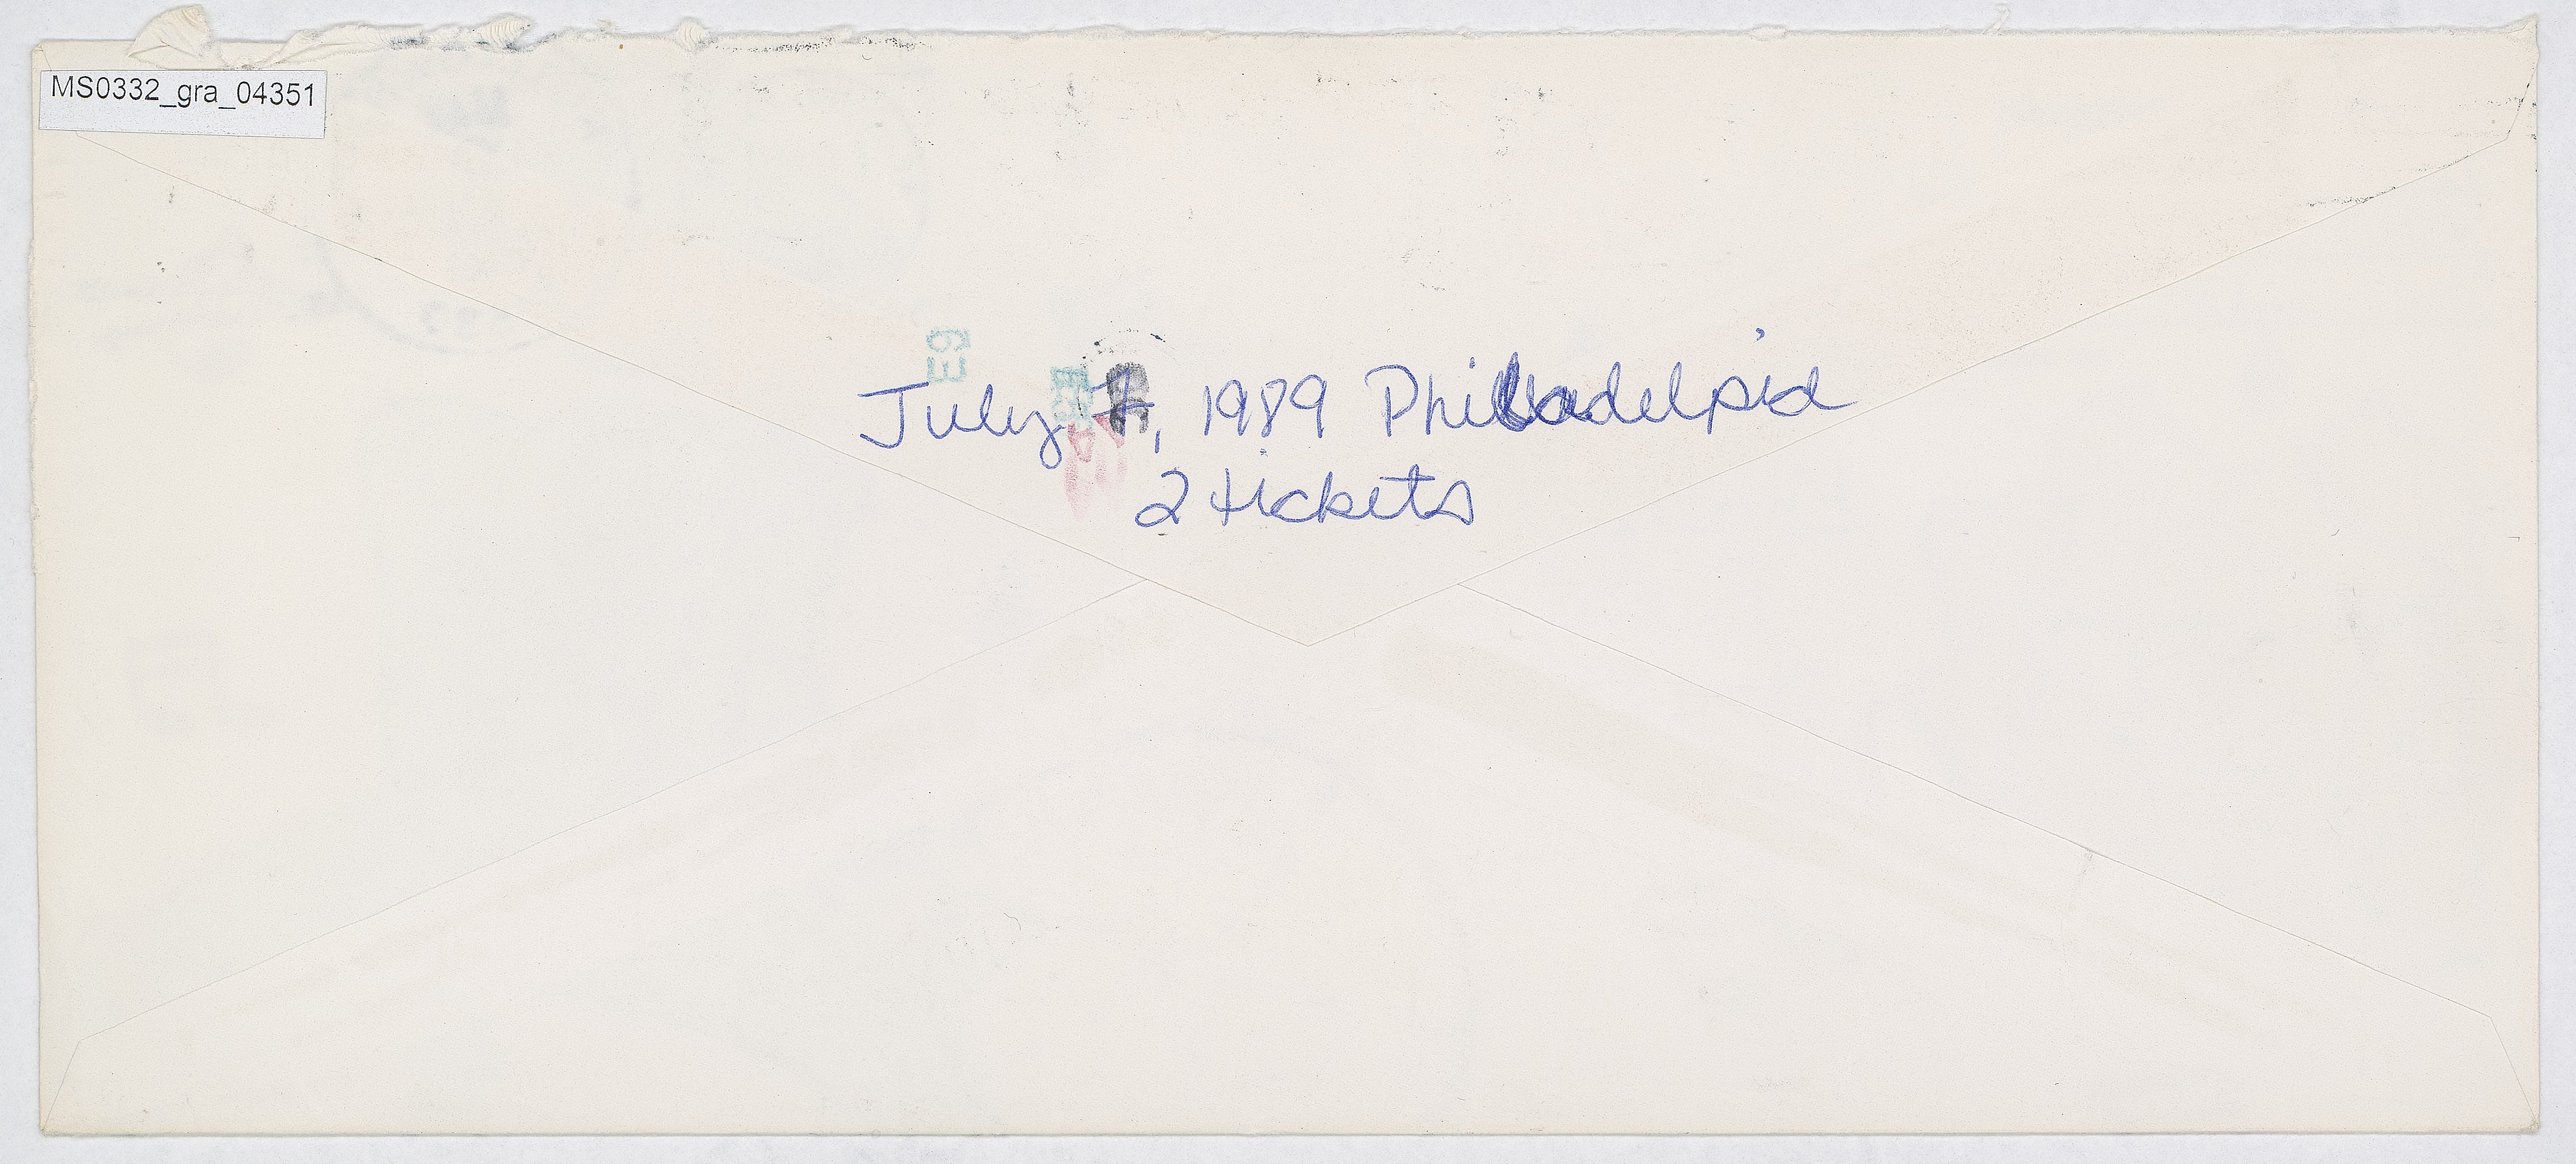 MS0332_gra_04351
July 7, 1989 Philadelpia
2 tickets